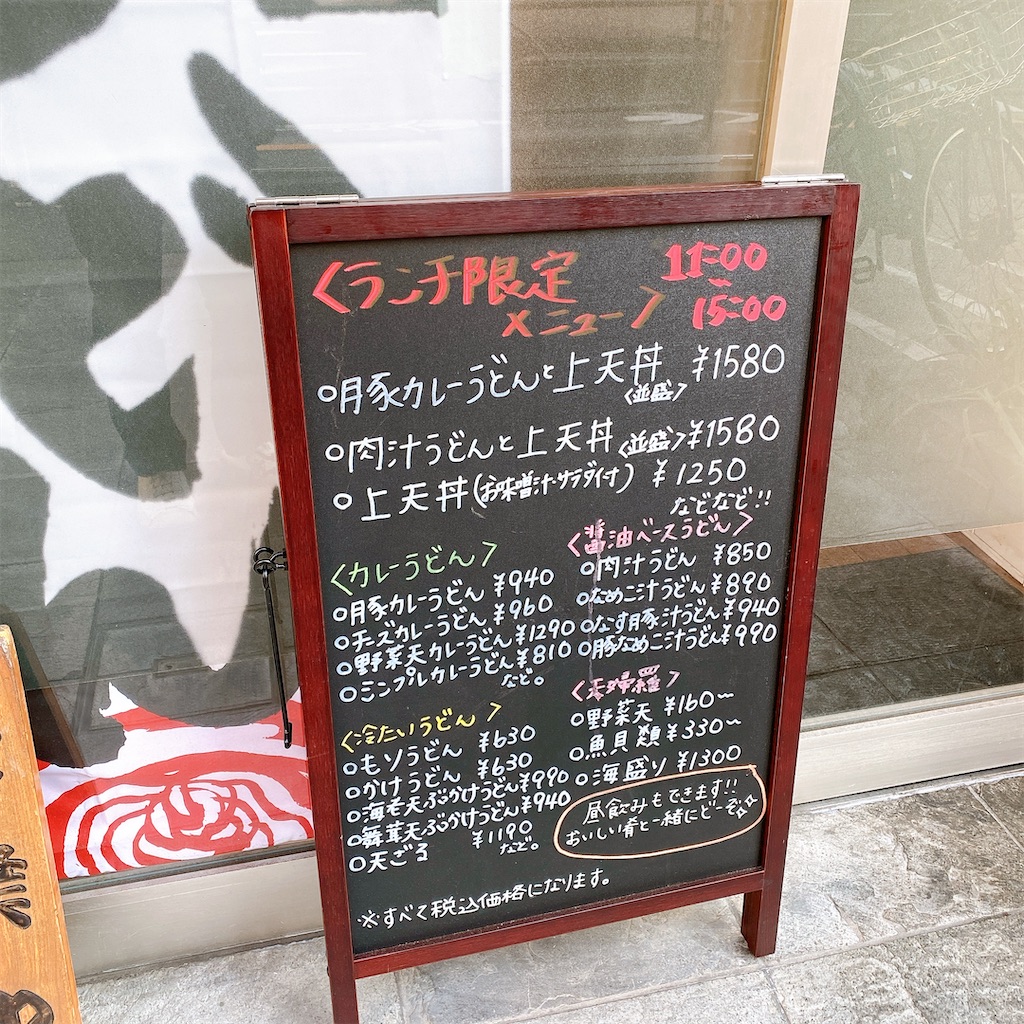 〈ランチ限定
メニュー〉
11:00
~
15:00
○豚カレーうどんと上天丼 ¥1580
〈並盛〉
○肉汁うどんと上天丼〈並盛〉¥1580
○上天丼(お味噌汁・サラダ付) ¥1250
などなど!!
〈カレーうどん〉
○豚カレーうどん ¥940
○チーズカレーうどん ¥960
○野菜天カレーうどん ¥1290
○シンプルカレーうどん ¥810
など。
〈冷たいうどん〉
○もりうどん ¥630
○かけうどん ¥630
○海老天ぶかけうどん ¥990
○舞茸天ぶかけうどん ¥940
○天ざる ¥1190
など。
〈醤油ベースうどん〉
○肉汁うどん ¥850
○なめこ汁うどん ¥890
○なす豚汁うどん ¥940
○豚なめこ汁うどん ¥990
〈天婦羅〉
○野菜天 ¥160~
○魚貝類 ¥330~
○海盛り ¥1300
昼飲みもできます!!
おいしい肴と一緒にどーぞ
※すべて税込価格になります。